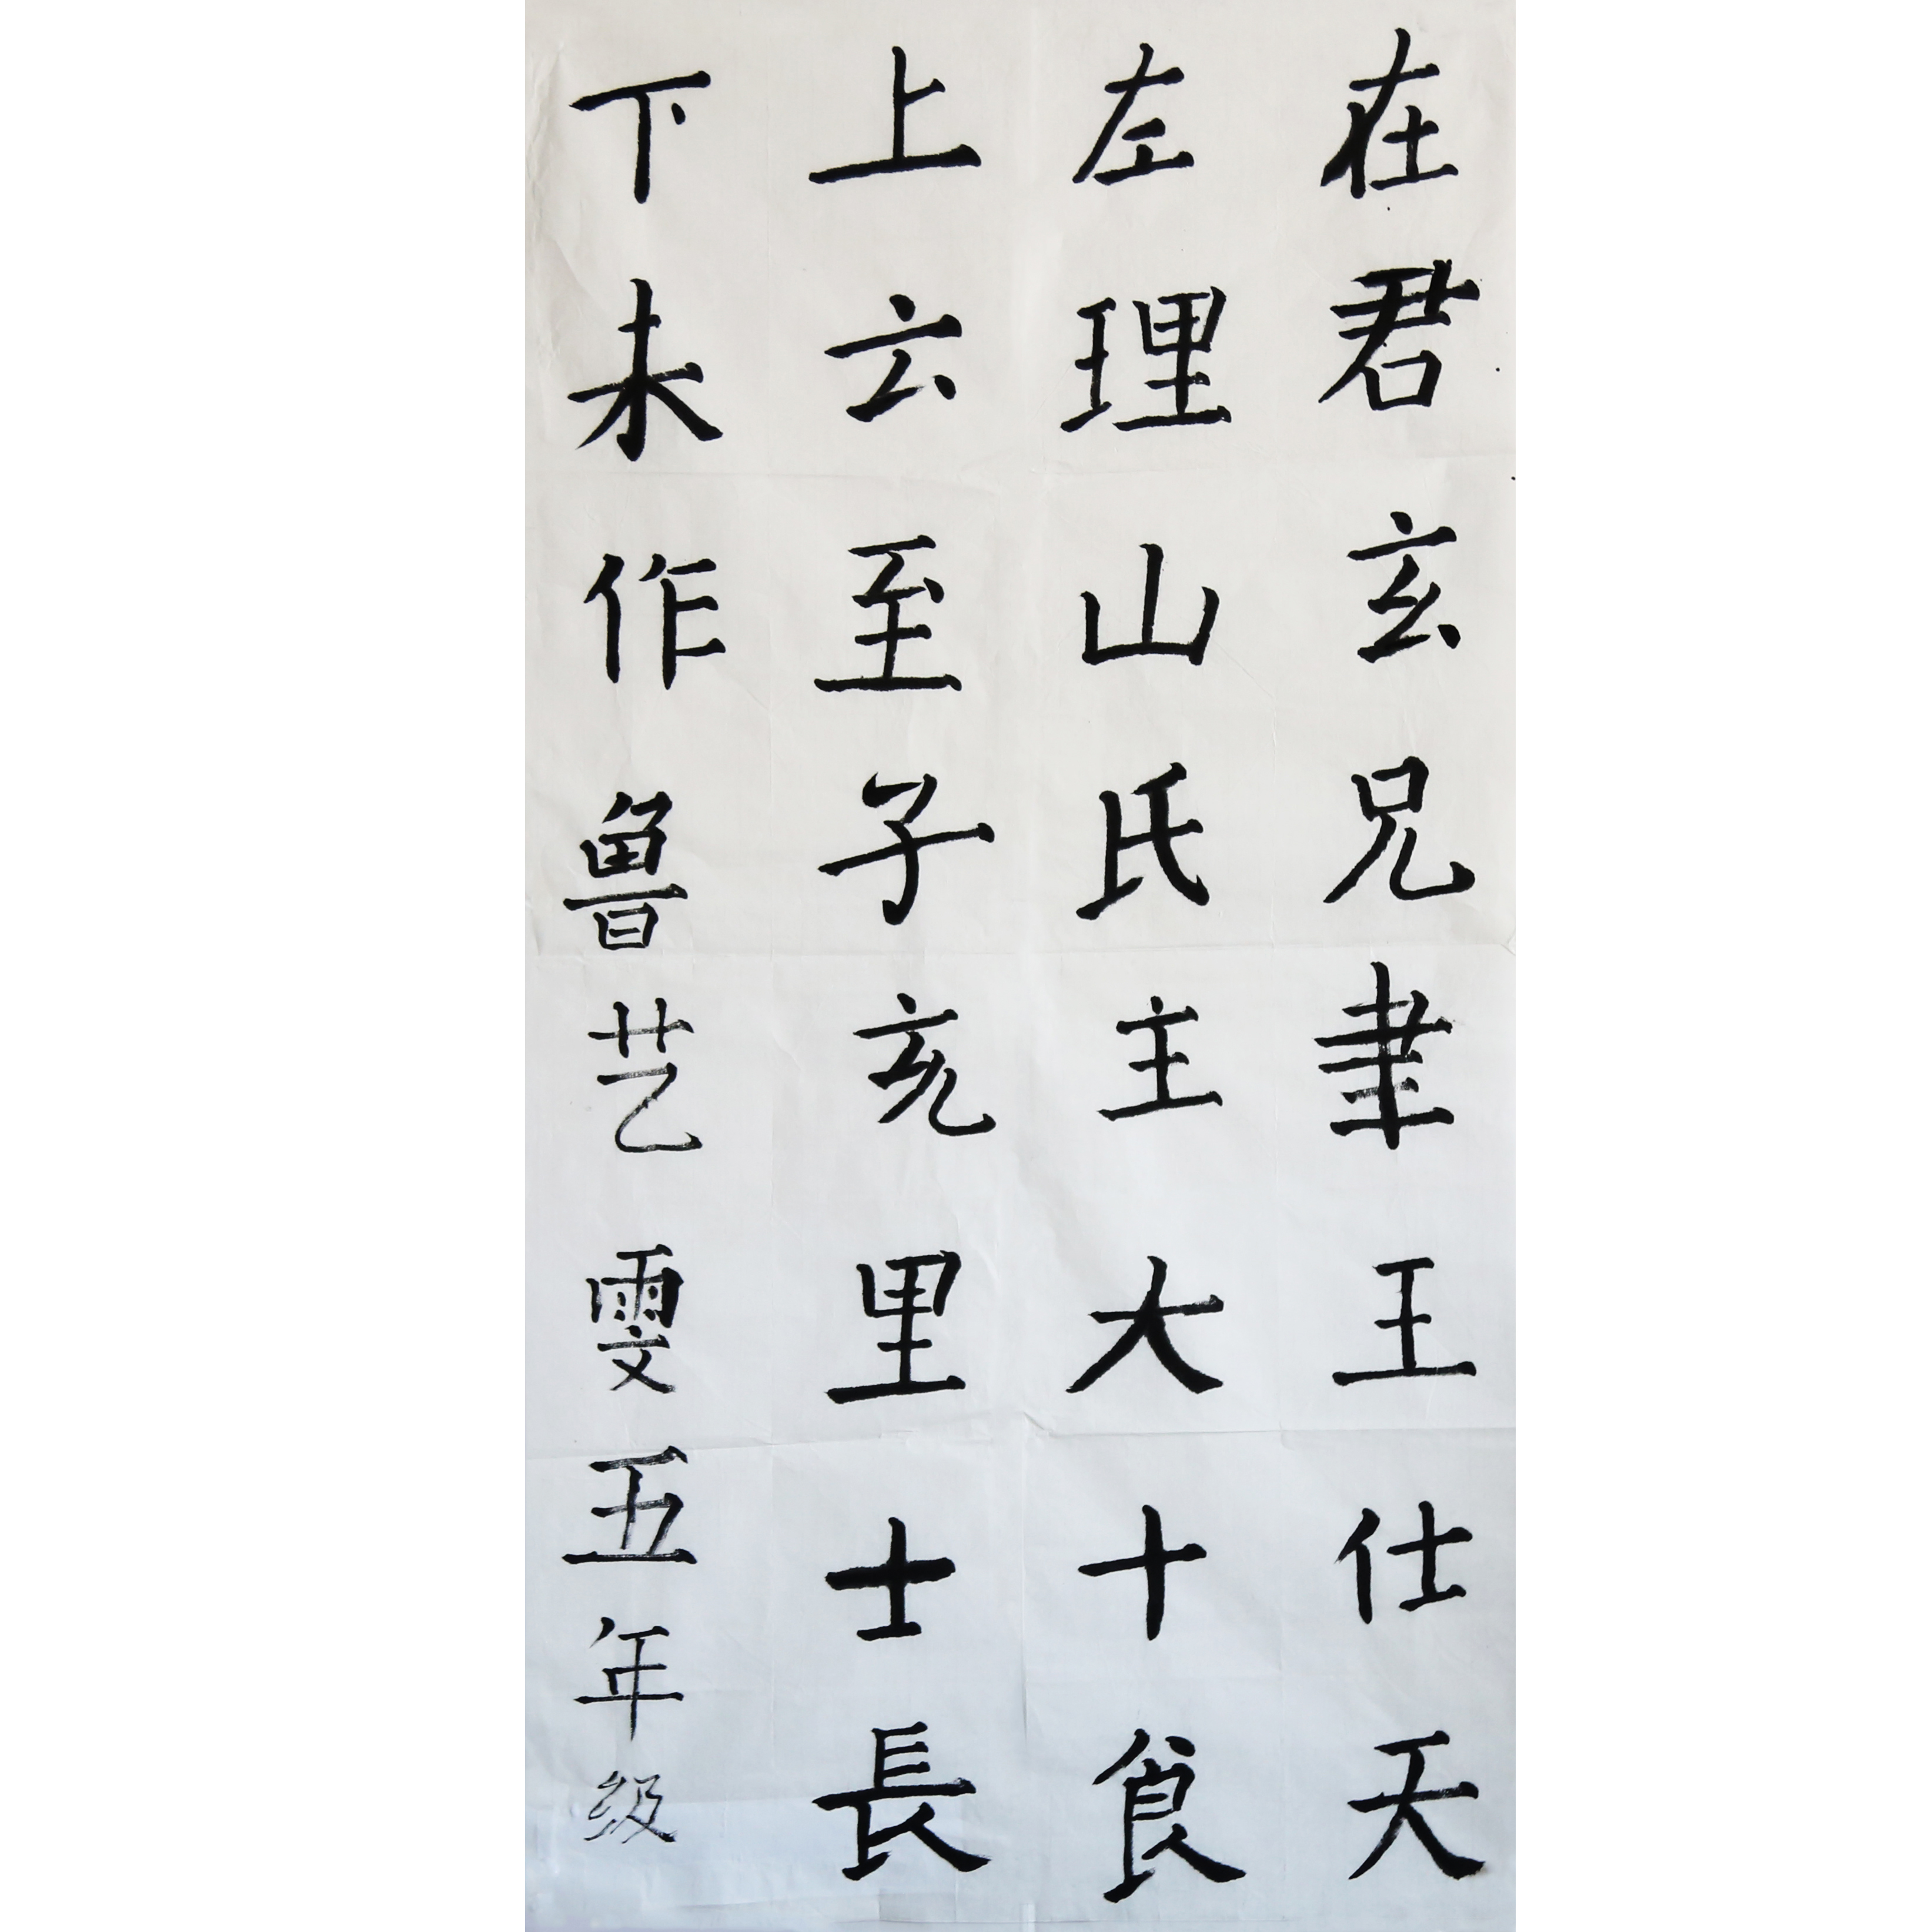 在君玄兄聿王仕天
左理山氏主大十食
上云至子充里士長
下未作 鲁艺雯五年级